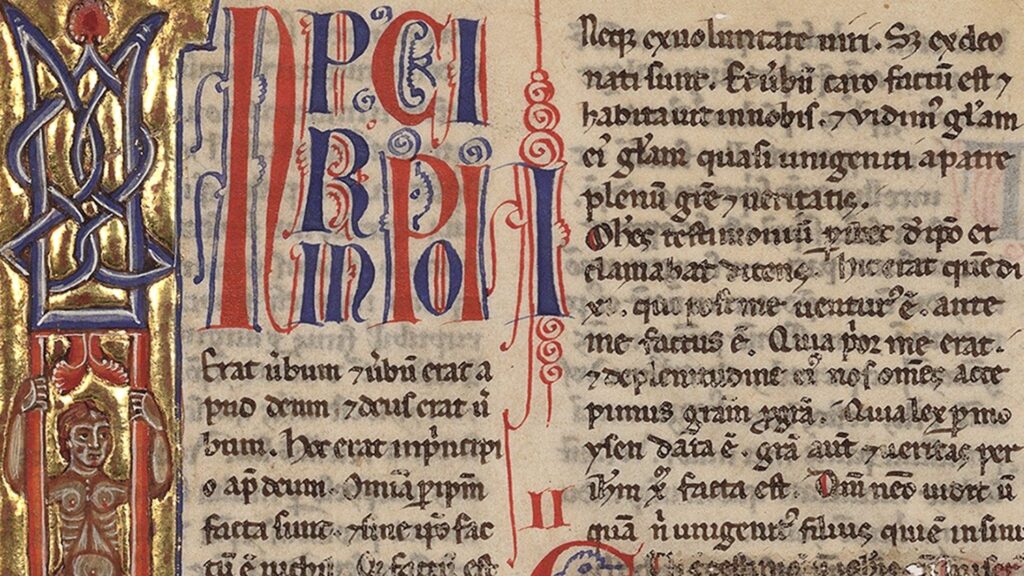 N P CI
R PI
IN O
I
Erat ūbum ⁊ ūbū erat a
pud deum ⁊ deus erat ū
bum. Hoc erat inpͥncipi
o ap̄ deum. Omīa ꝑ ip̄m
facta sunt. ⁊ sine ip̄o fac
tū ē nichil. Qd̄ factū est
II
Neqꝫ ex uoluntate uiri. Sꝫ ex deo
nati sunt. Et ūbū caro factū est ⁊
habitauit in nobis. ⁊ uidimꝰ gl̄am
eiꝰ gl̄am quasi unigeniti a patre
plenū gr̄e ⁊ ueritatis.
Ioh̄es testimoniū ꝑhibet d̄ ip̄o et
clamabat dicens. Hic erat quē di
xi. qui post me uenturꝰ ē. ante
me factus ē. Quia pͥor me erat.
⁊ de plenitudine eiꝰ nos om̄es acce
pimus gr̄am ꝓ gr̄a. Quia lex ꝑ mo
ysen data ē. gr̄a aut̄ ⁊ ueritas per
ih̄m xp̄m facta est. Dm̄ nemo uidit ū
quā nͥ unigenitꝰ filius qui ē in sinu